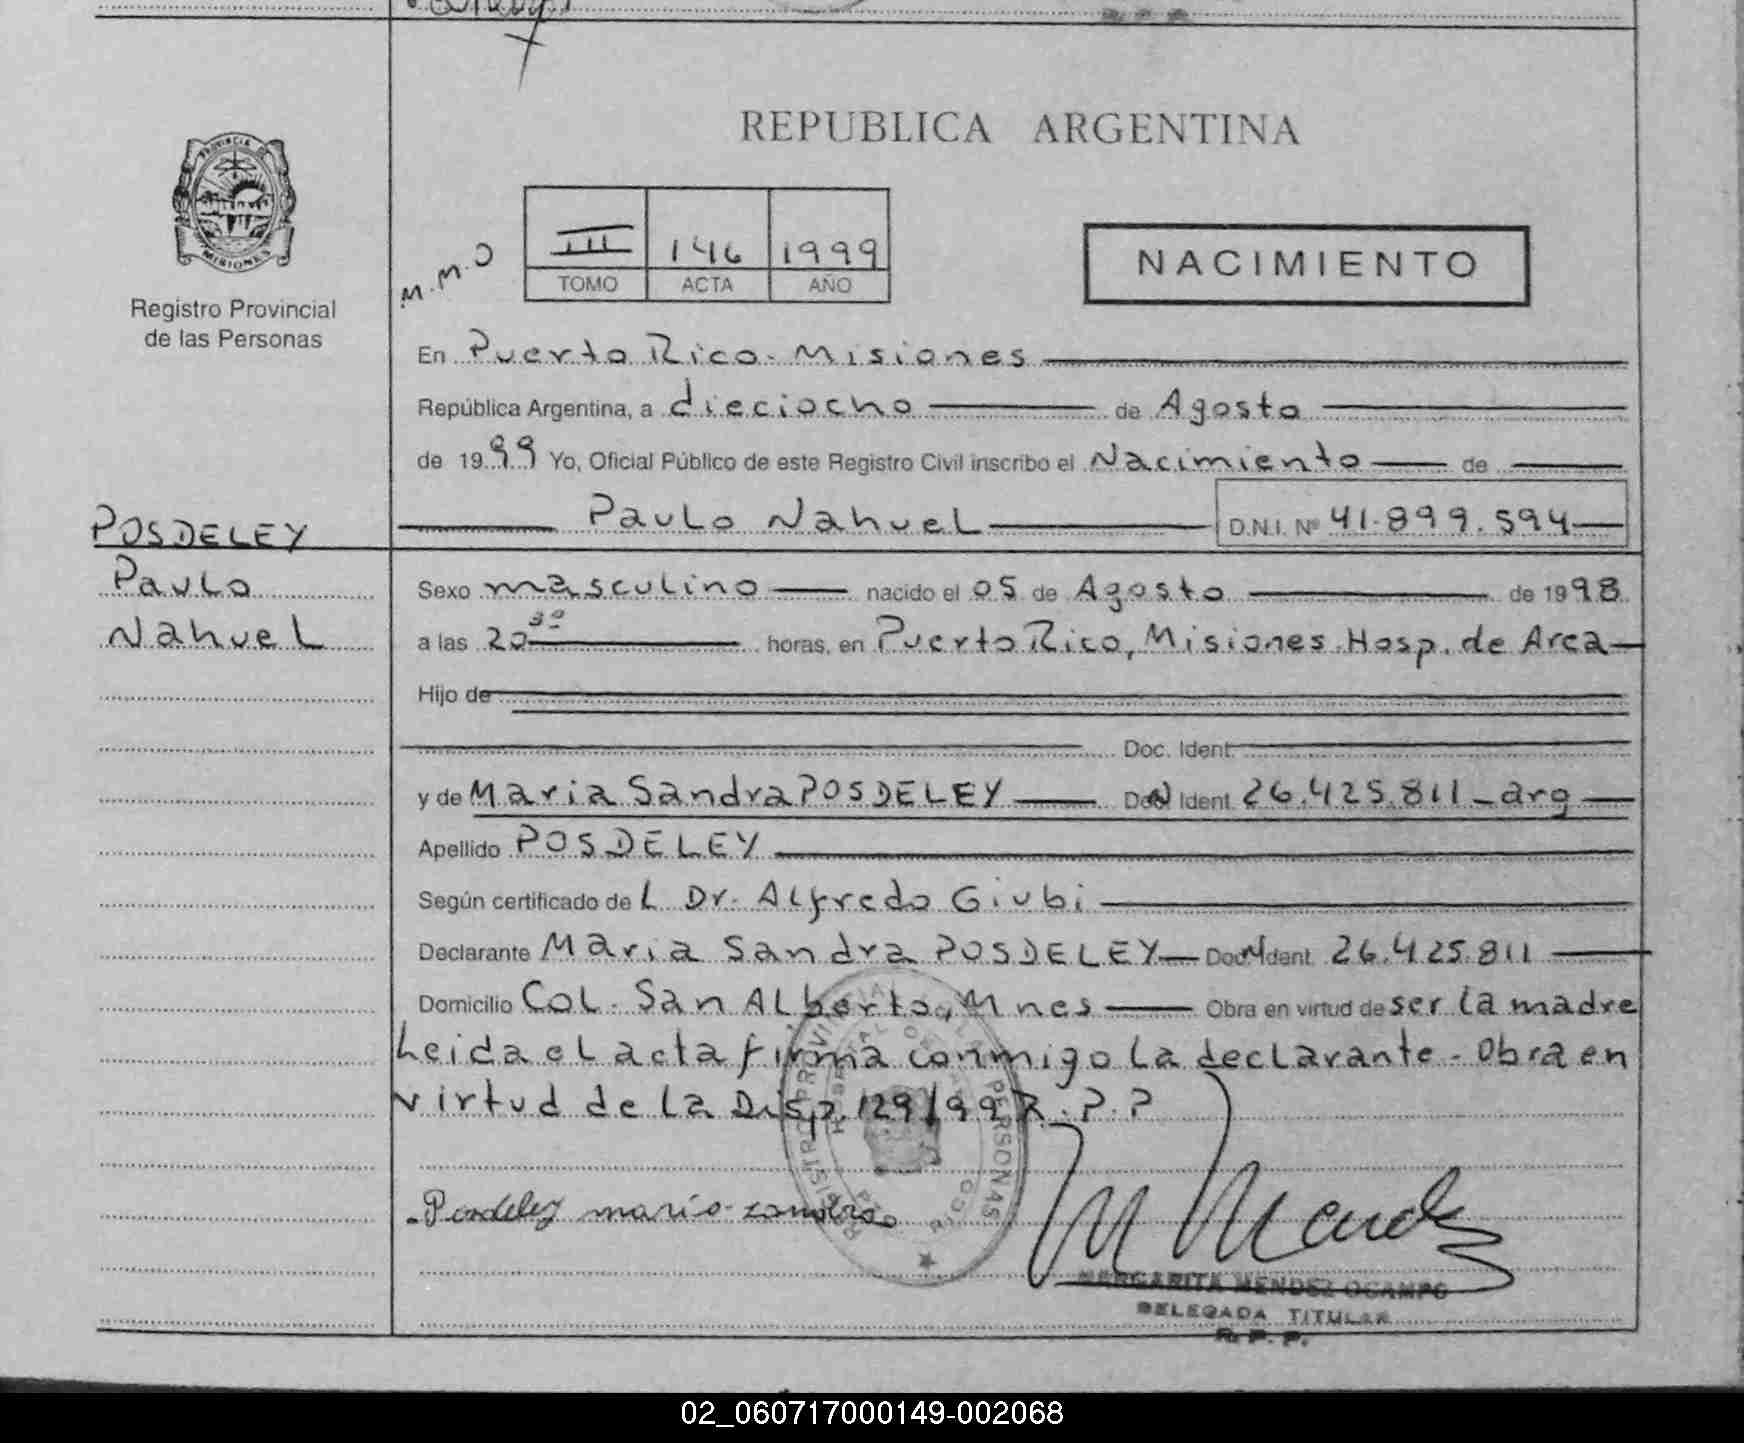 REPUBLICA ARGENTINA
PROVINCIA DE
MISIONES
Registro Provincial
de las Personas
M.M.O
III 146 1999
TOMO ACTA AÑO
NACIMIENTO
En Puerto Rico. Misiones
República Argentina, a dieciocho de Agosto
de 1999 Yo, Oficial Público de este Registro Civil inscribo el Nacimiento de
Paulo Nahuel D.N.I. Nº 41.899.594
POSDELEY
Paulo
Nahuel
Sexo masculino nacido el 05 de Agosto de 1998
a las 20 30 horas, en Puerto Rico, Misiones. Hosp. de Area
Hijo de
Doc. Ident.
y de Maria Sandra POSDELEY Doc. Ident. 26.425.811 - arg
Apellido POSDELEY
Según certificado de L Dr. Alfredo Giubi
Declarante Maria Sandra POSDELEY Doc. Ident. 26.425.811
Domicilio Col. San Alberto, Mnes Obra en virtud de ser la madre
Leida el acta firma conmigo la declarante - Obra en
virtud de la Disp. 129/99 R.P.P
Posdeley maria zandra
REGISTRO PROVINCIAL DE LAS PERSONAS
M Mendez
MARGARITA MENDEZ OCAMPO
DELEGADA TITULAR
R.P.P.
02_060717000149-002068